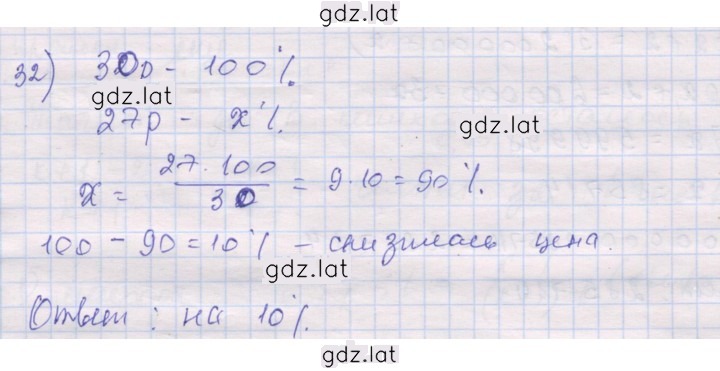 gdz.lat
32) 30р - 100%
gdz.lat
27р - x%.
gdz.lat
x = 27·100 / 30 = 9·10 = 90%.
100 - 90 = 10% - снизилась цена.
gdz.lat
Ответ: на 10%.
gdz.lat